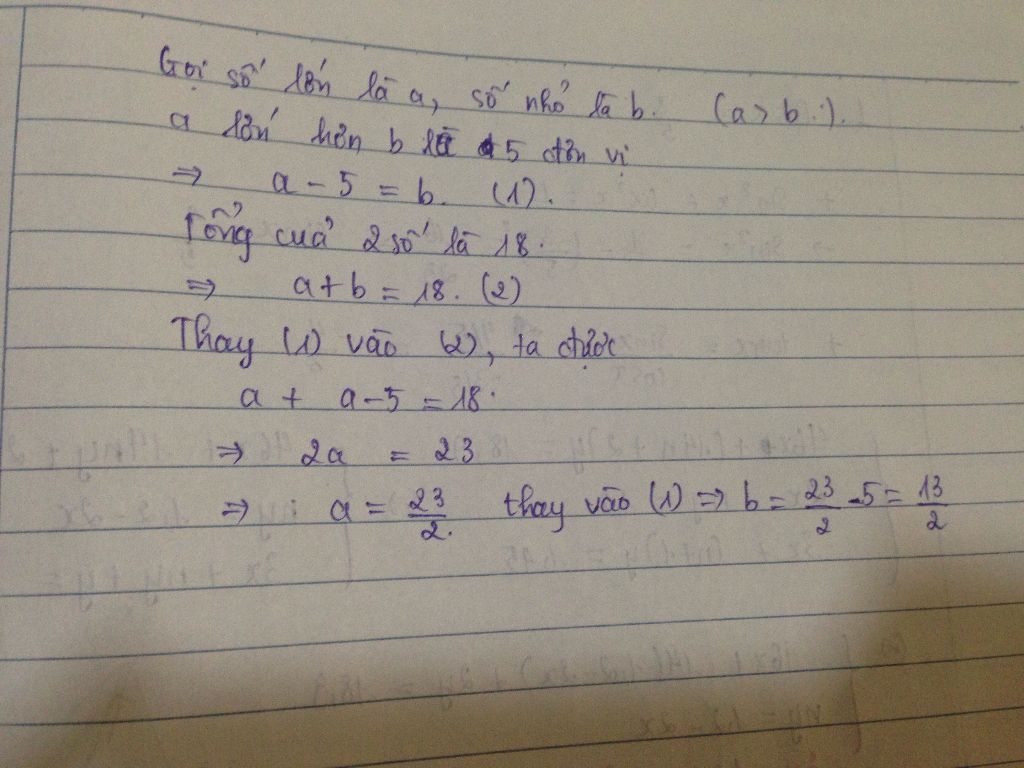 Gọi số lớn là a, số nhỏ là b. (a > b.).
a lớn hơn b là 5 đơn vị
=> a - 5 = b. (1).
Tổng cuả 2 số là 18.
=> a + b = 18. (2)
Thay (1) vào (2), ta được
a + a - 5 = 18.
=> 2a = 23
=> a = 23/2. thay vào (1) => b = 23/2 - 5 = 13/2